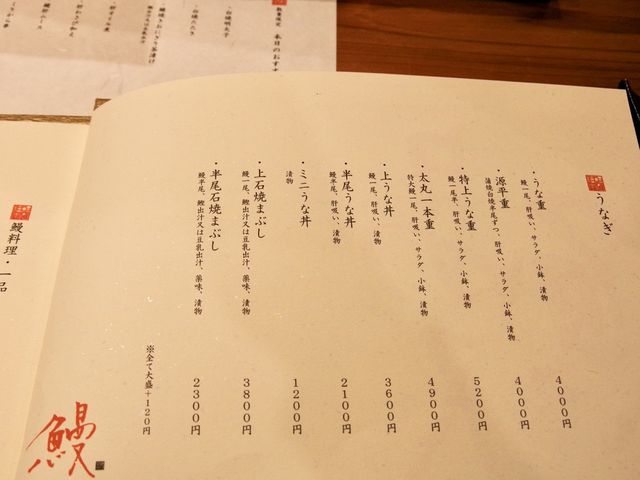 うなぎ
・うな重
鰻一尾、肝吸い、サラダ、小鉢、漬物
4000円
・源平重
蒲焼白焼半尾ずつ、肝吸い、サラダ、小鉢、漬物
4000円
・特上うな重
鰻一尾半、肝吸い、サラダ、小鉢、漬物
5200円
・太丸一本重
特大鰻一尾、肝吸い、サラダ、小鉢、漬物
4900円
・上うな丼
鰻一尾、肝吸い、漬物
3600円
・半尾うな丼
鰻半尾、肝吸い、漬物
2100円
・ミニうな丼
漬物
1200円
・上石焼まぶし
鰻一尾、鰹出汁又は豆乳出汁、薬味、漬物
3800円
・半尾石焼まぶし
鰻半尾、鰹出汁又は豆乳出汁、薬味、漬物
2300円
※全て大盛+120円
鰻
鰻料理・一品
数量限定 本日のおす
・白焼明太子
・鰻焼きおにぎり茶漬け
・肝わさび和え